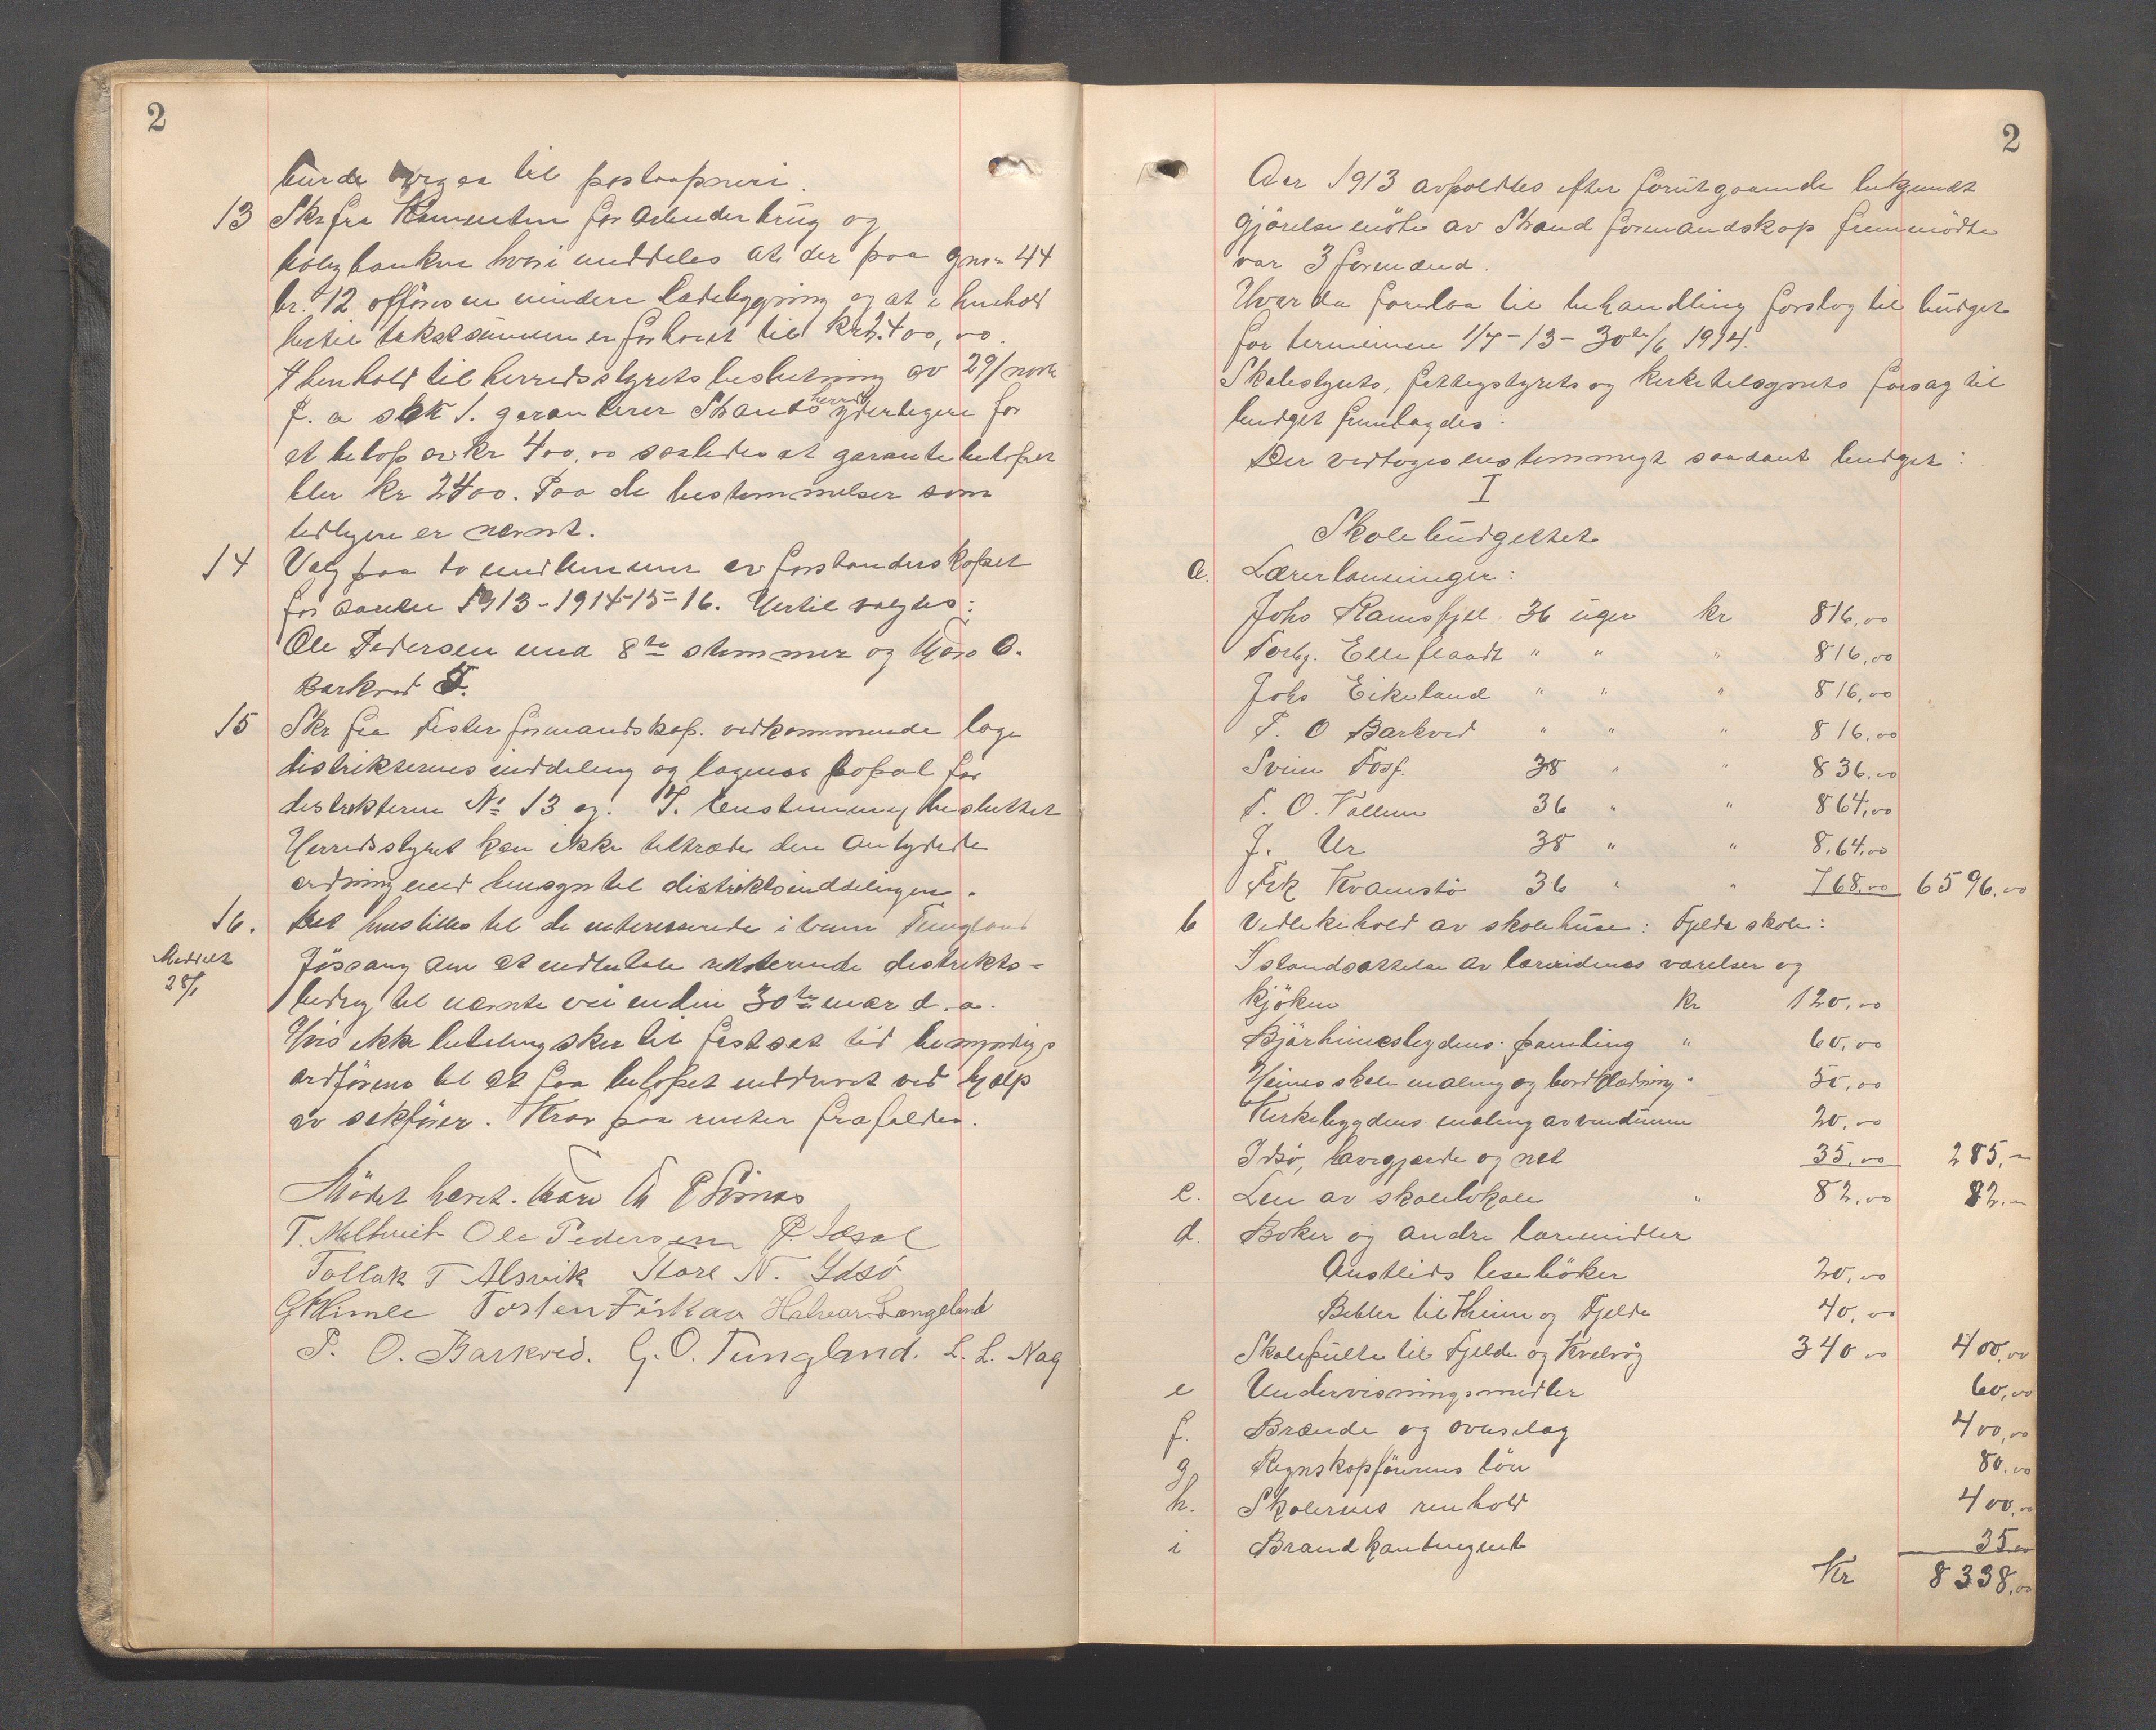 2
burde  til postaapneri.
13 Skr fra  for Arbeiderbrug og
boligbanken hvori meddeles at der paa gnr. 44
br. 12 opföres en mindre ladebygning og at i henhold
hertil takstsummen er forhöiet til kr 2400,00.
I henhold til herredsstyrets beslutning av 29/
f. a sak 1. garanterer Strands herred yderligere for
et belöp av kr 400,00 saaledes at garantibelöpet
blir kr 2400. Paa de bestemmelser som
tidligere er nævnt.
14 Valg paa to medlemmer av forstanderskapet
for aarene 1913-1914-15-16. Hertil valgtes:
Ole Pedersen med 8 stemmer og  O.
Barkved 5.
15 Skr fra Fister formandskap. vedkommende lage
distrikternes inddeling og lagenes  for
distrikterne No 13 og. 7. Enstemmig besluttet
Herredsstyret kan ikke tiltræde den antydede
ordning med hensyn til distriktsinddelingen.
16. Det henstilles til de interesserede i veien Tungland
Meddelt
28/1
Jössang om at indbetale resterende distrikts-
bidrag til nævnte vei inden 30te mar d. a.
Hvis ikke betaling sker til fastsat tid bemyndiges
ordförene til at faa belöpet inddrevet ved hjælp
av sakförer. Krav paa renter frafaldes.
Mödet hævet.
T. Meltveit Ole Pedersen
Tollak T Alsvik Kore N. Idsö
G Heimle Torsten Fiskaa Halvar Langeland
P. O. Barkved. G. O. Tungland. L. L. Nag
2
Aar 1913 avholdtes efter forutgaaende bekjendt
gjörelse möte av Strand formandskap fremmödte
var 3 formænd.
Hvor da forelaa til behandling forslag til budget
for terminen 1/7-13-30te/6 1914.
Skolestyrets, fattigstyrets og kirketilsynets forslag til
budget fremlagdes.
Der vedtoges enstemmigt saadant budget:
I
Skolebudgettet
a. Lærerlönninger:
Johs Ramsfjell. 36 uger kr 816,00
Torbj. Elleflaadt " " " 816,00
Johs Eikeland " " " 816,00
P. O Barkved " " " 816,00
Svein Fosf. 38 " " 836,00
T. O. Vollum 36 " " 864,00
J. Ur 38 " " 8.64,00
Frk Kvamsö 36 " " 768,00 6596,00
b Vedlikehold av skolehuse: Fjelde skole:
Istandsættelse av lærerindens værelser og
kjöken kr 120,00
Bjørheimsbygdens panling " 60,00
Heims skole maling og bordklædning " 50,00
Kirkebygdens maling av vinduene 20,00
Idsö, havegjærde og net 35,00 285,-
c. Leie av skolelokale " 82,00 82.-
d. Böker og andre læremidler
Austlids leseböker 20,00
Bibler til Heim og Fjelde 40,00
Skolepulte til Fjelde og Kvelvåg 340 00 400,00
e Undervisningsmidler 60,00
f. Brænde og ovnslag 400,00
g Regnskapförerens lön 80,00
h. Skolernes renhold 400,00
i Brandkontingent 35,00
Kr 8338,00